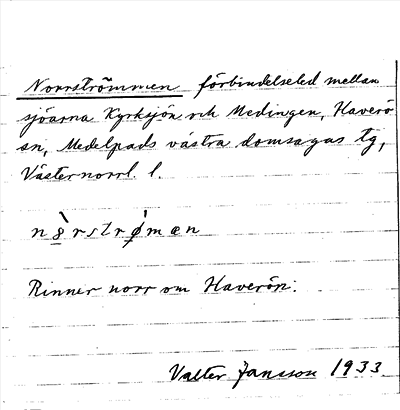 Norrströmmen förbindelseled mellan
sjöarna Kyrksjön och Medingen, Haverö
sn, Medelpads västra domsagas tg,
Västernorrl. l.
nò̱rstrǿmæn
Rinner norr om Haverön.
Valter Jansson 1933